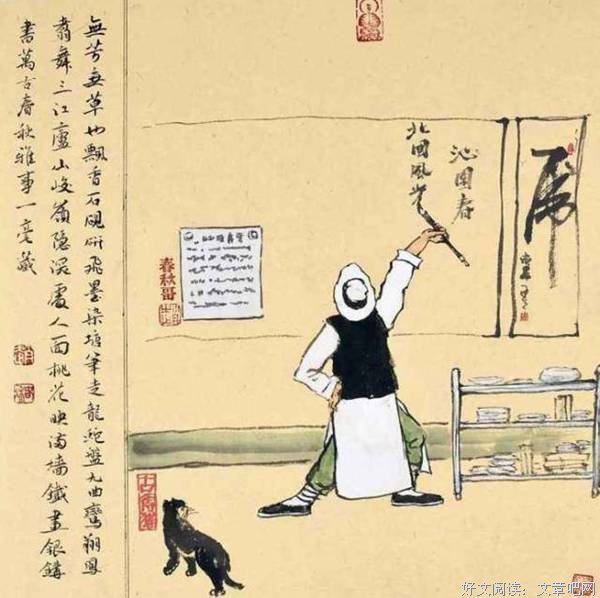 虎
沁園春
北國風光
春秋哥
無芳無草也飄香石硯研飛墨染塘筆走龍蛇盤九曲鸞翔鳳
翥舞三江廬山峻嶺隱深處人面桃花映滿墻鐵畫銀鉤
書萬古春秋雅事一毫藏
好文阅读:文章吧网